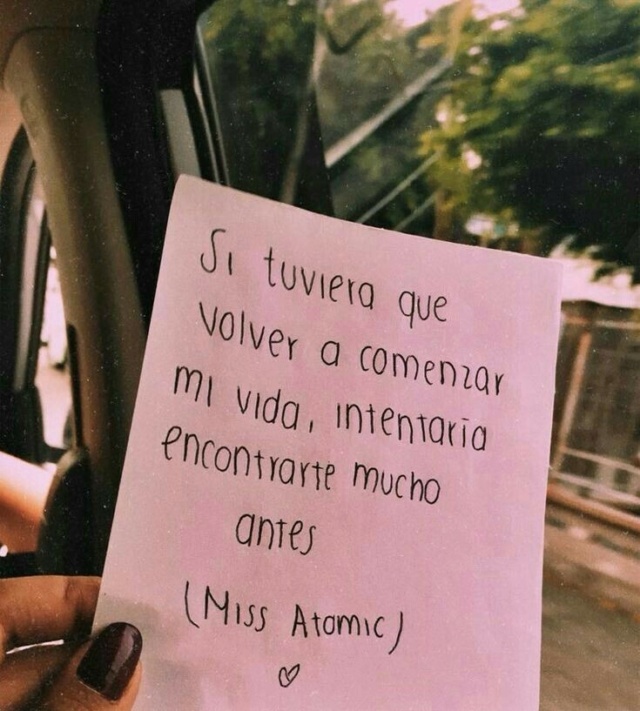 Si tuviera que
volver a comenzar
mi vida, intentaría
encontrarte mucho
antes
(Miss Atomic)
♡